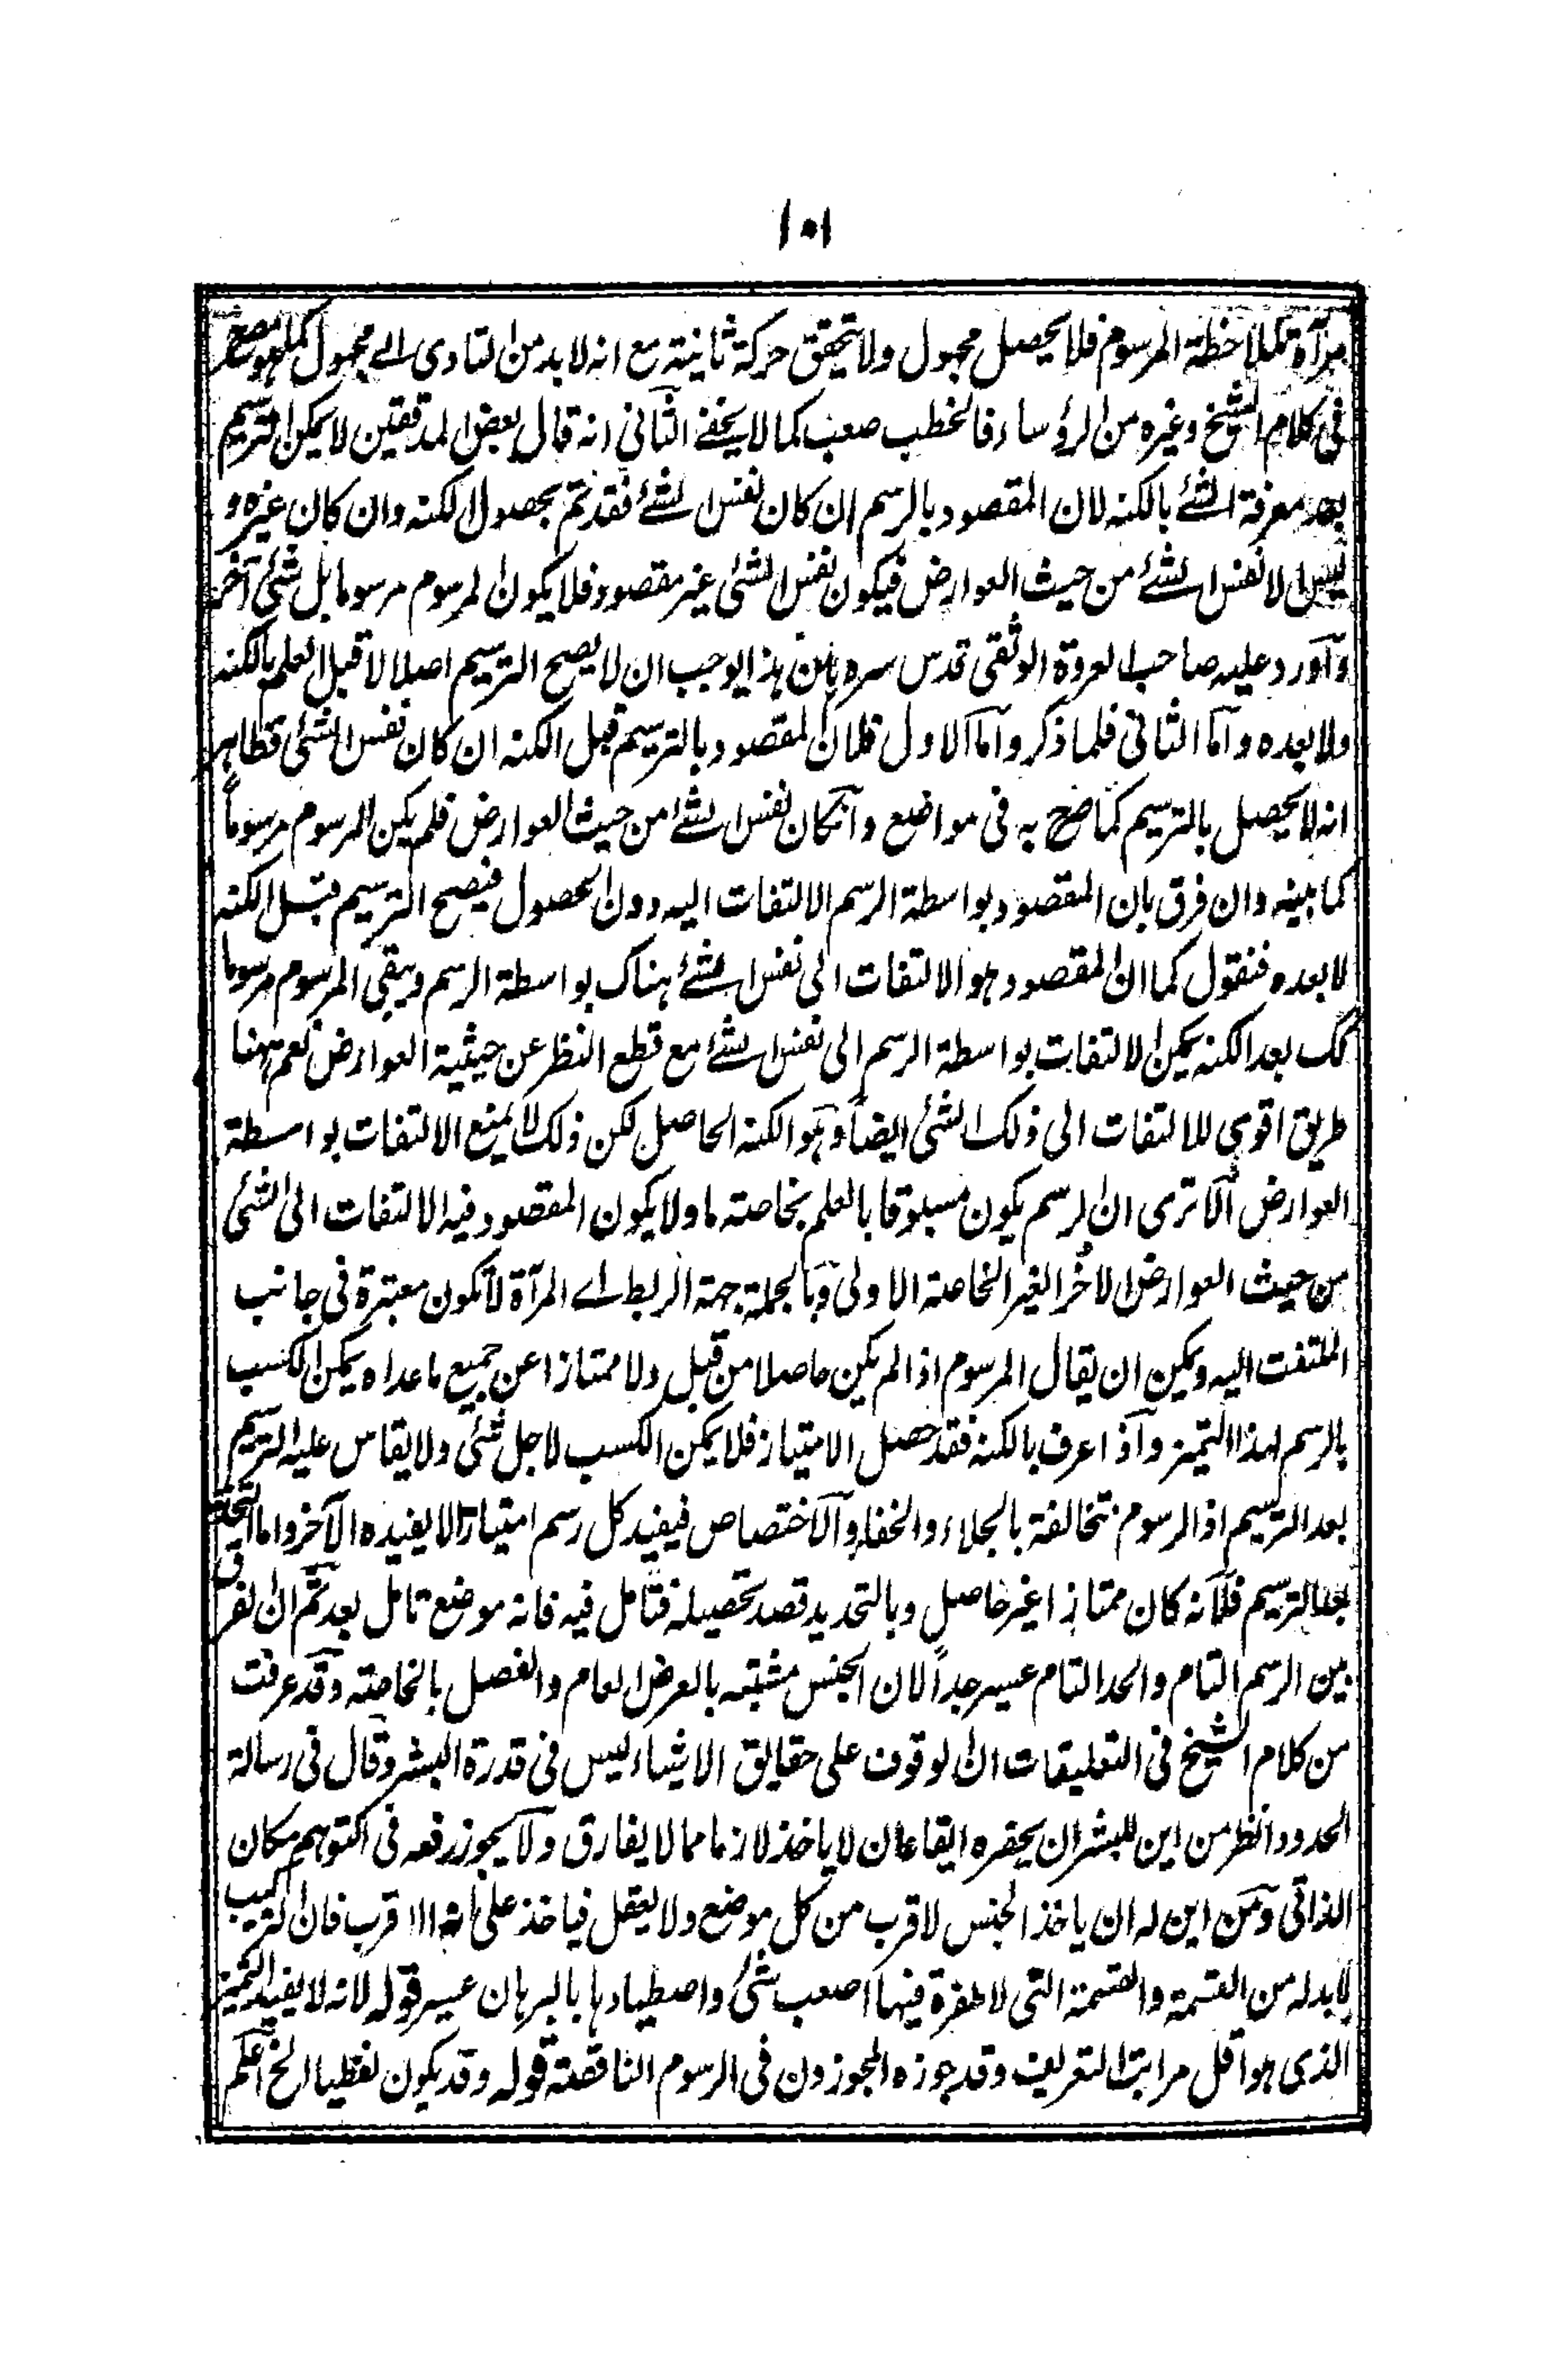 ١٠١
مرآة لملاحظة المرسوم فلا يحصل مجهول ولا يتحقق حركة ثانية مع انه لا بد من التادى الے مجهول كما هو مصرح
فى كلام الشيخ وغيره من الرؤساء فالخطب صعب كما لا يخفے الثانى انه قال بعض المدققين لا يمكن الترسيم
بعد معرفة الشئ بالكنه لان المقصود بالرسم ان كان نفس الشئ فقد تم بحصول الكنه وان كان غيره و
ليس الا نفس الشئ من حيث العوارض فيكون نفس الشئ غير مقصود فلا يكون المرسوم مرسوما بل شئ آخر
وآورد عليه صاحب العروة الوثقى قدس سره بان هذا يوجب ان لا يصح الترسيم اصلا لا قبل العلم بالكنه
ولا بعده وآما الثانى فلما ذكر وآما الاول فلان المقصود بالترسيم قبل الكنه ان كان نفس الشئ فظاهر
انه لا يحصل بالترسيم كما صح به فى مواضع وآن كان نفس الشئ من حيث العوارض فلم يكن المرسوم مرسوماً
كما بينه وان فرق بان المقصود بواسطة الرسم الالتفات اليه دون الحصول فيصح الترسيم قبل الكنه
لا بعده فنقول كما ان المقصود هو الالتفات الى نفس الشئ هناك بواسطة الرسم ويبقى المرسوم مرسوما
كك بعد الكنه يمكن الالتفات بواسطة الرسم الى نفس الشئ مع قطع النظر عن حيثية العوارض نعم ههنا
طريق اقوى للالتفات الى ذلك الشئ ايضاً وهو الكنه الحاصل لكن ذلك لا يمنع الالتفات بواسطة
العوارض آلا ترى ان الرسم يكون مسبوقا بالعلم بخاصته ما ولا يكون المقصود فيه الالتفات الى الشئ
من حيث العوارض الاخر الغير الخاصة الاولى وبالجملة جهة الربط اے المرآة لا تكون معتبرة فى جانب
الملتفت اليه ويمكن ان يقال المرسوم اذا لم يكن حاصلا من قبل ولا ممتازا عن جميع ما عداه يمكن الكسب
بالرسم لهذا التميز وآذا عرف بالكنه فقد حصل الامتياز فلا يمكن الكسب لاجل شئ ولا يقاس عليه الترسيم
بعد الترسيم اذ الرسوم تتخالفة بالجلاء والخفاء وآلاختصاص فيفيد كل رسم امتيازا لا يفيده الآخر واما التحديد
بعد الترسيم فلانه كان ممتازا غير حاصل وبالتحديد قصد تحصيله فتامل فيه فانه موضع تامل بعد ثم ان الفرق
بين الرسم التام والحد التام عسير جداً لان الجنس مشتبه بالعرض العام والفصل بالخاصته وقد عرفت
من كلام الشيخ فى التعليقات ان الوقوف على حقايق الاشياء ليس فى قدرة البشر وقال فى رسالة
الحدود انظر من اين للبشر ان يحقره ايقاعا ان لا ياخذ لازما مما لا يفارق ولا يجوز رفعه فى التوهم مكان
الذاتى ومن اين له ان ياخذ الجنس الاقرب من كل موضع ولا يغفل فياخذ على انه الاقرب فان التركيب
لا بد له من القسمة والقسمة التى لا طفرة فيها اصعب شئ واصطيادها بالبرهان عسير قوله لانه لا يفيد التميز
الذى هو اقل مراتب التعريف وقد جوزه المجوزون فى الرسوم الناقصة قوله وقد يكون لفظيا الخ اعلم